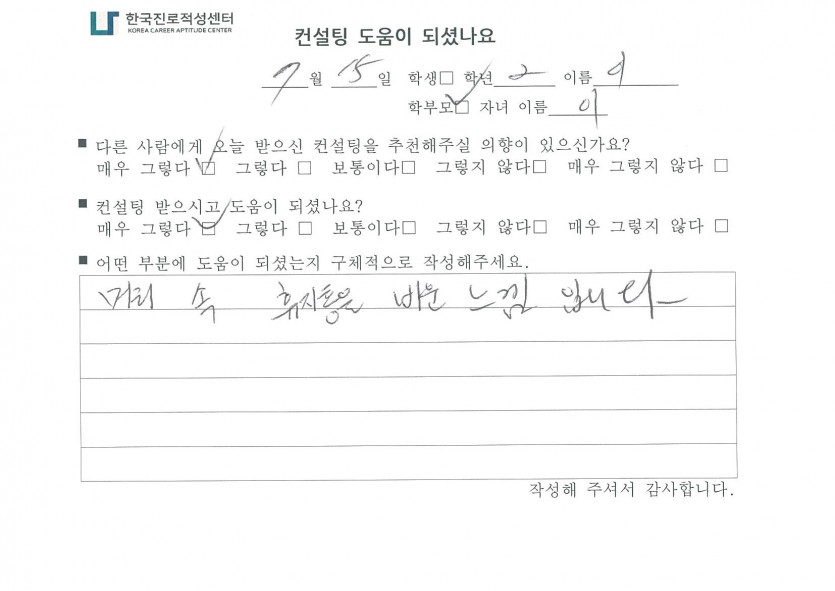 한국진로적성센터
KOREA CAREER APTITUDE CENTER
컨설팅 도움이 되셨나요
7월 15일 학생□ 학년 2 이름 이
학부모□ 자녀 이름 이
■ 다른 사람에게 오늘 받으신 컨설팅을 추천해주실 의향이 있으신가요?
매우 그렇다 □ 그렇다 □ 보통이다□ 그렇지 않다□ 매우 그렇지 않다 □
■ 컨설팅 받으시고 도움이 되셨나요?
매우 그렇다 □ 그렇다 □ 보통이다□ 그렇지 않다□ 매우 그렇지 않다 □
■ 어떤 부분에 도움이 되셨는지 구체적으로 작성해주세요.
머리 속 휴지통을 비운 느낌 입니다
작성해 주셔서 감사합니다.